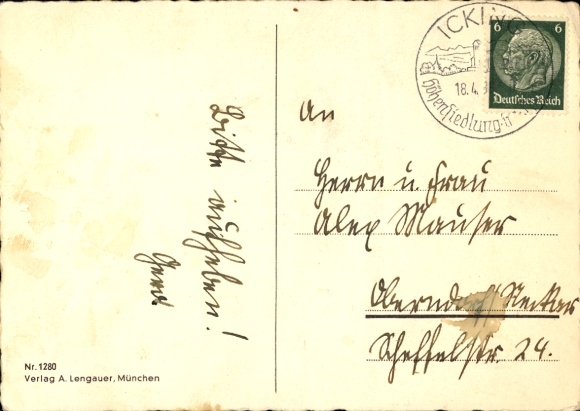 Bitte aufheben!
Gerd.
Nr. 1280
Verlag A. Lengauer, München
ICKING
18.4.
Höhensiedlung
6 6
Deutsches Reich
An
Herrn u. Frau
Alex Mauser
Oberndorf/Neckar
Scheffelstr. 24.